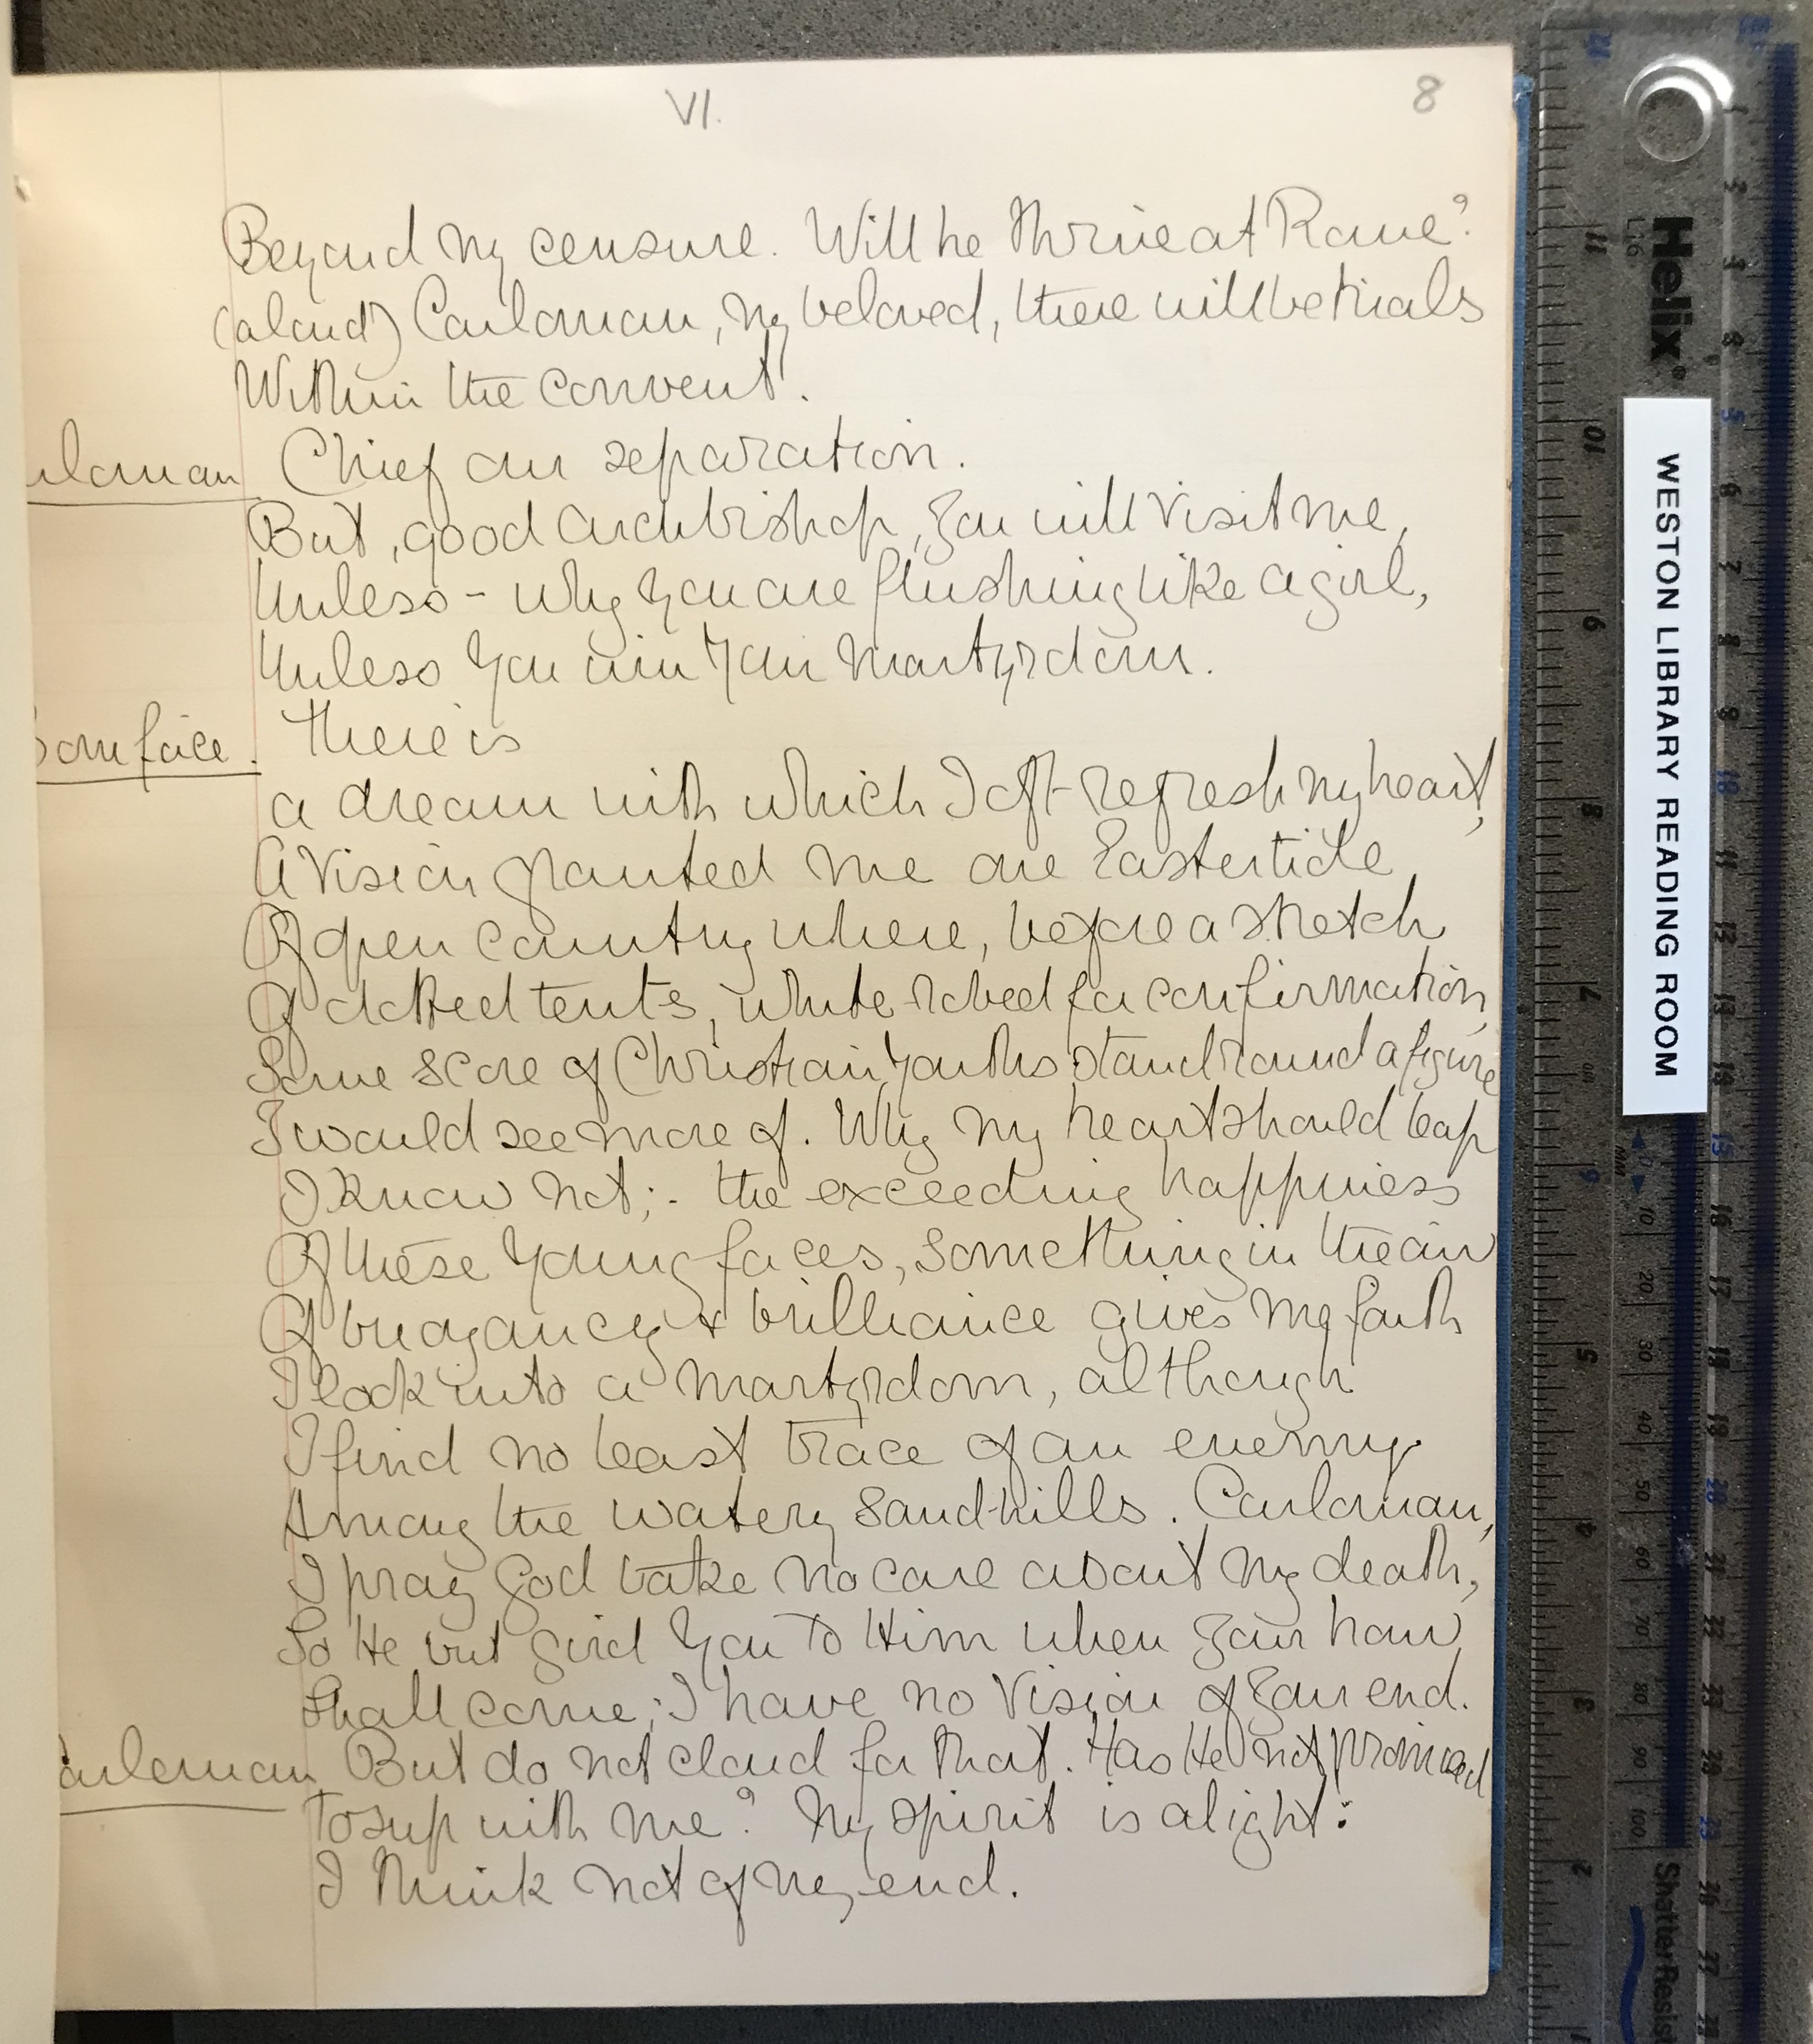 VI.
8
Beyond my censure. Will he thrive at Rome?
(aloud) Carloman, my beloved, there will be trials
Within the convent.
rloman Chief our separation.
But, good archbishop, you will visit me,
Unless - why you are flushing like a girl,
Unless you win your martyrdom.
Boniface. There is
a dream with which I oft refresh my heart,
A vision granted me one Eastertide
Of open country where, before a stretch
Of dotted tents, white-robed for confirmation,
Some score of Christian youths stand round a figure
I would see more of. Why my heart should leap
I know not; - the exceeding happiness
Of these young faces, something in the air
Of buoyancy & brilliance gives me faith
I look into a martyrdom, although
I find no least trace of an enemy
Among the watery sandhills. Carloman,
I pray God take no care about my death,
So He but gird you to Him when your hour
Shall come; I have no vision of your end.
Carloman But do not cloud for that. Has He not promised
To sup with me? My spirit is alight:
I think not of my end.
Helix®
L16
WESTON LIBRARY READING ROOM
Shatter Resis